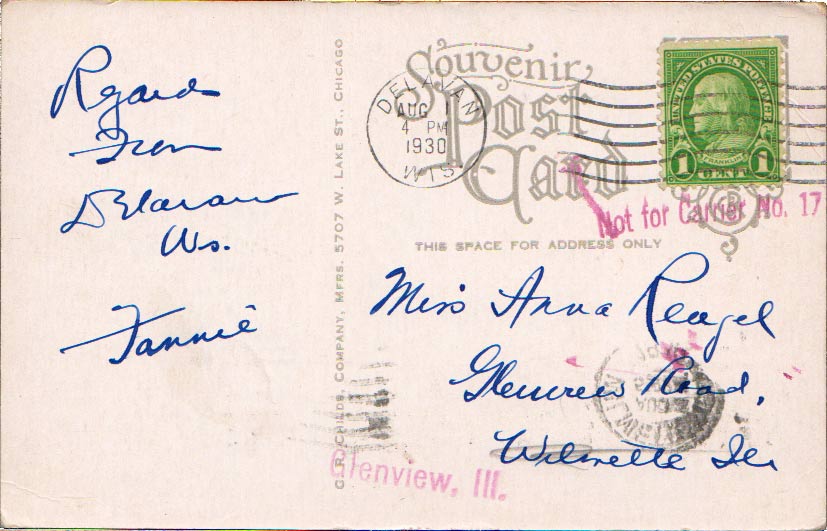 Regards
From
Delavan
Ws.
Fannie
C. R. CHILDS, COMPANY, MFRS. 5707 W. LAKE ST., CHICAGO
Souvenir
Post
Card
DELAVAN
AUG 1
4 PM
1930
WIS.
UNITED STATES POSTAGE
FRANKLIN
1 CENT 1
Not for Carrier No. 17
THIS SPACE FOR ADDRESS ONLY
Miss Anna Rengel
Glenview Road,
Wilmette Ill
Glenview, Ill.